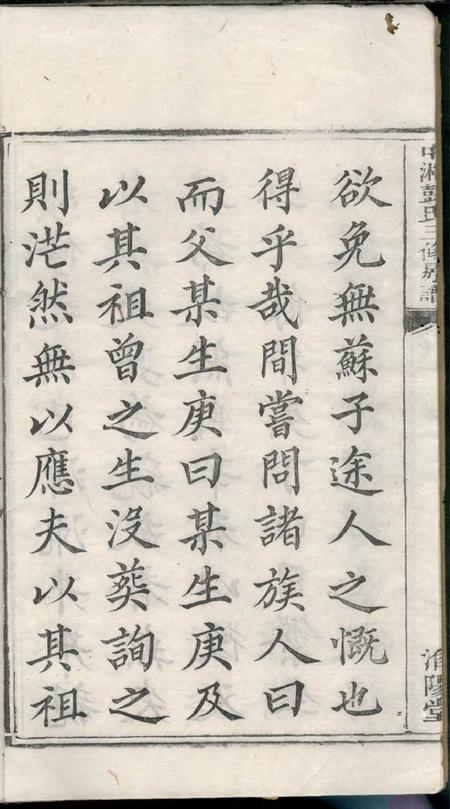 中湘彭氏三修族譜
淮陽堂
欲免無蘇子途人之慨也
得乎哉間嘗問諸族人曰
而父某生庚曰某生庚及
以其祖曾之生沒葬詢之
則茫然無以應夫以其祖